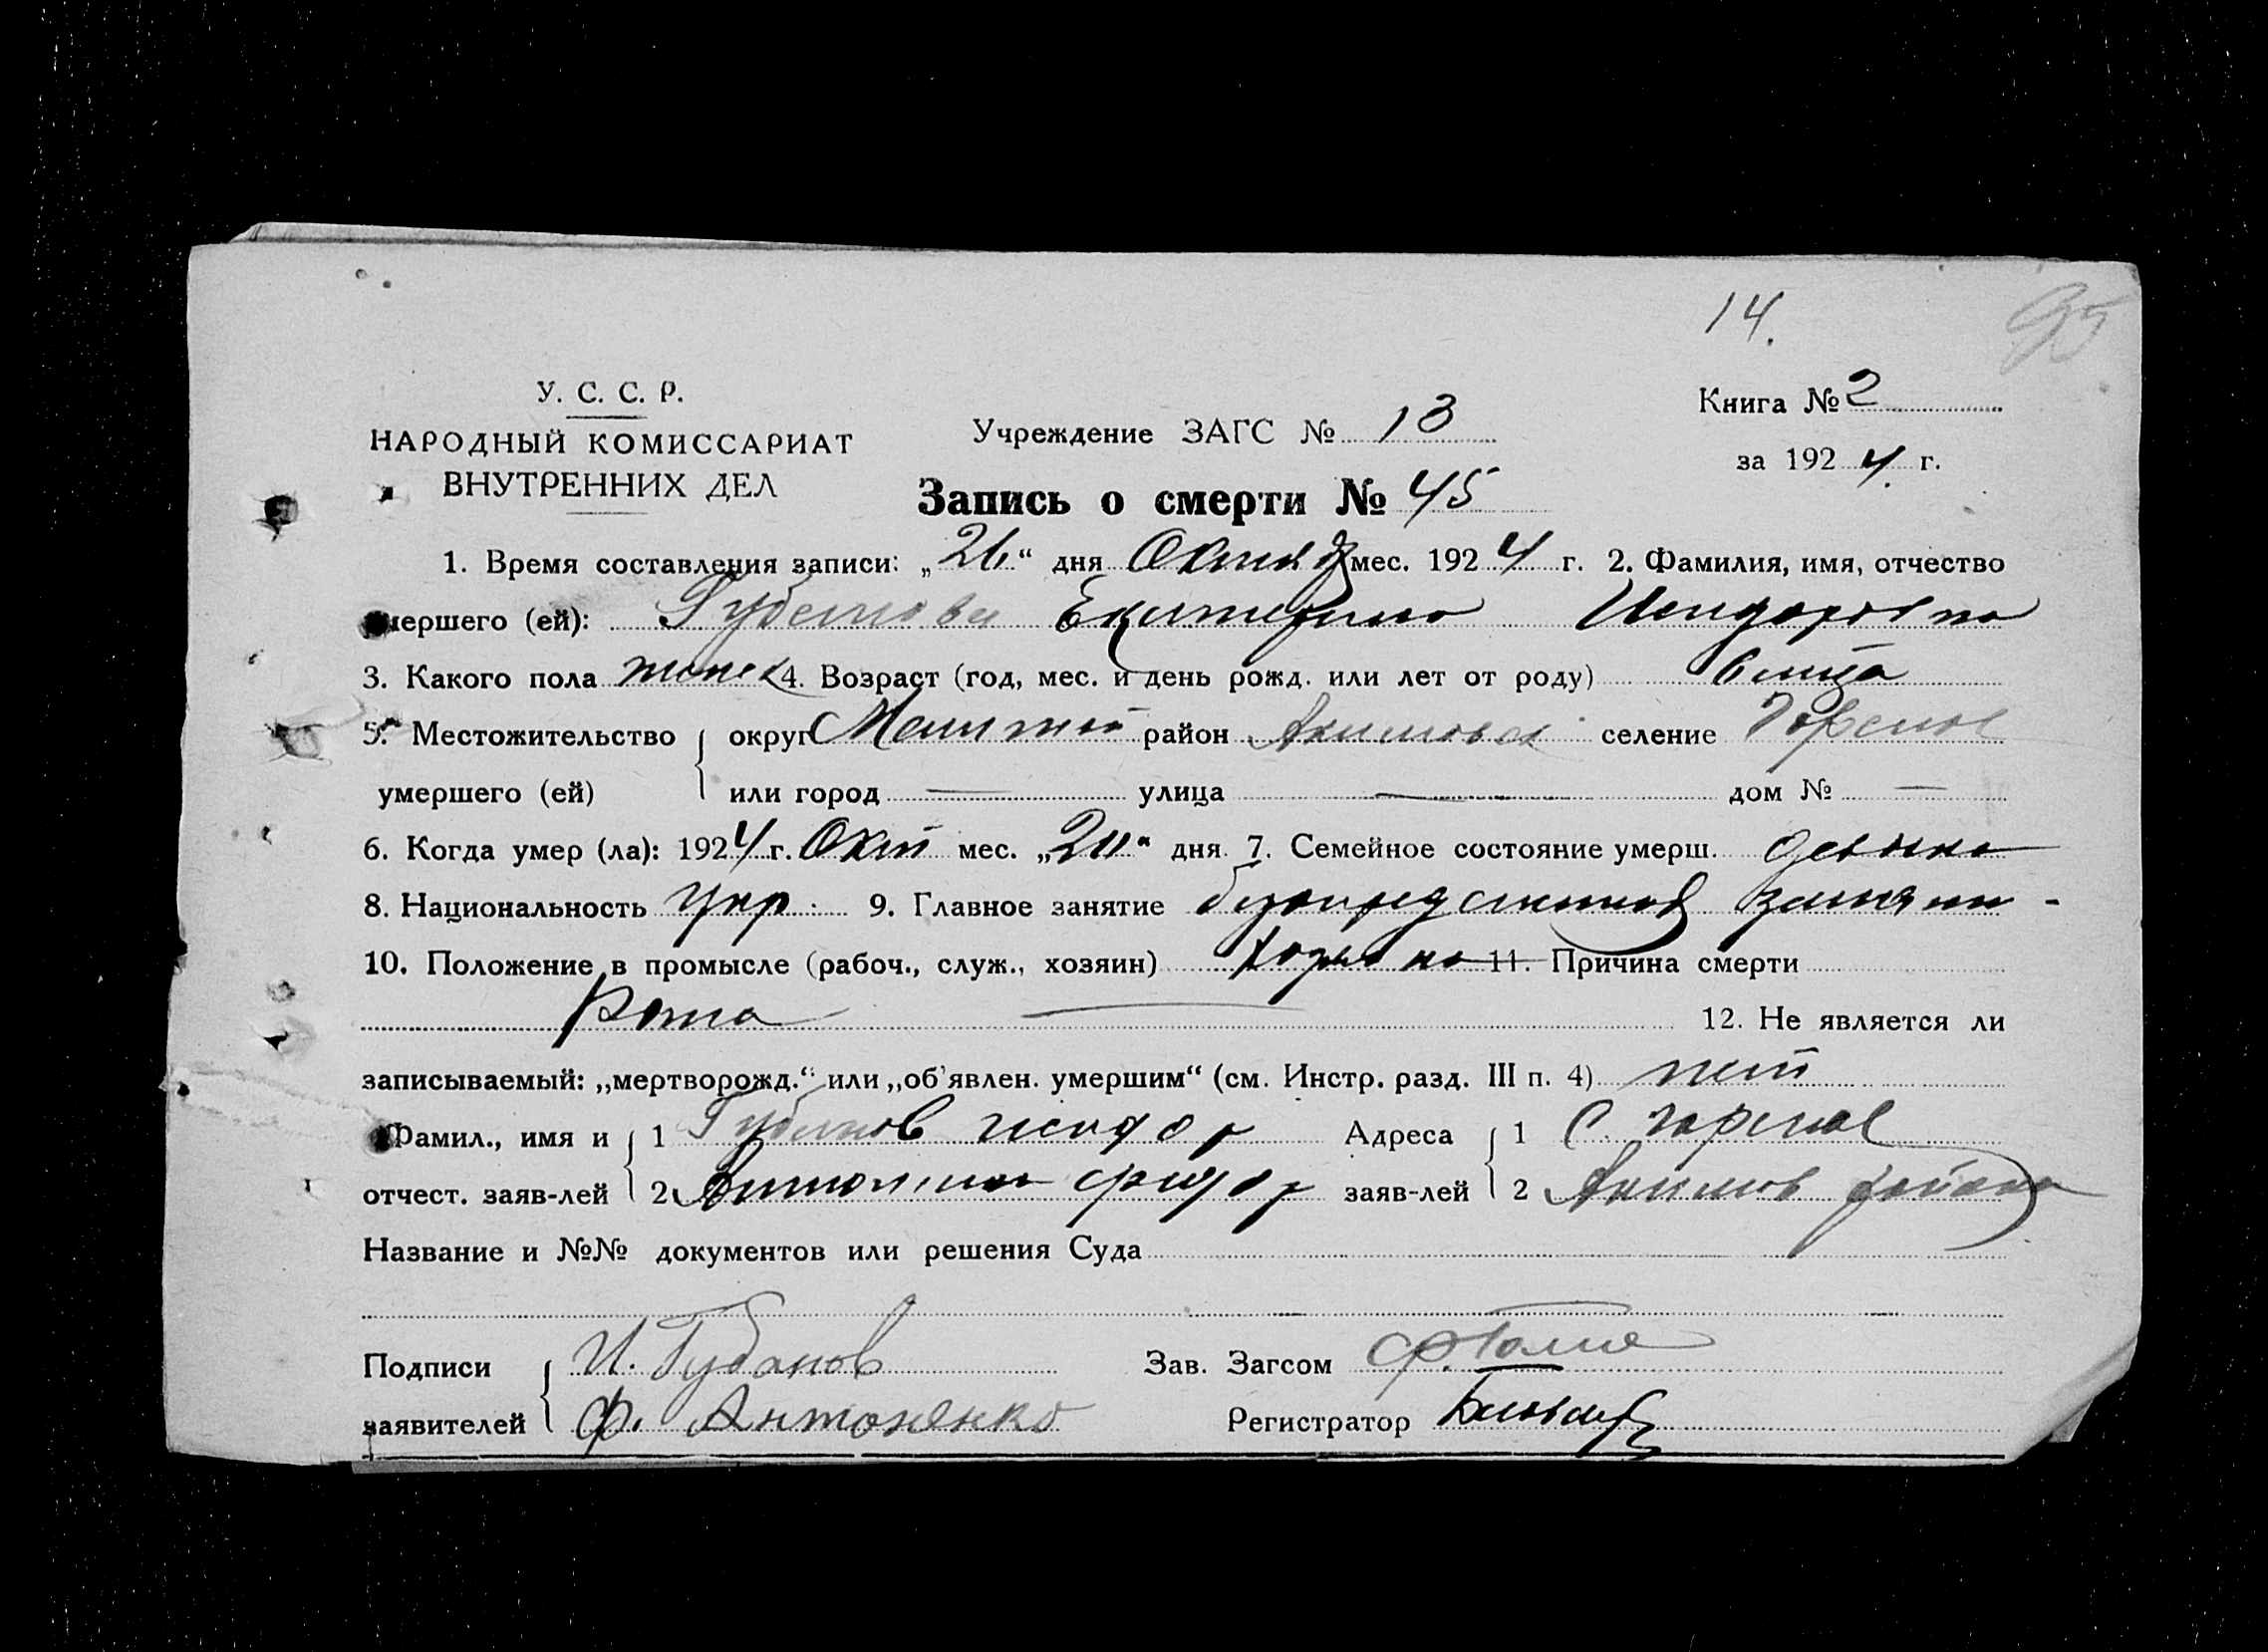 14.
95
У. С. С. Р.
НАРОДНЫЙ КОМИССАРИАТ
ВНУТРЕННИХ ДЕЛ
Учреждение ЗАГС № 13
Книга № 2
за 1924 г.
Запись о смерти № 45
1. Время составления записи: „26“ дня Октяб мес. 1924 г. 2. Фамилия, имя, отчество
умершего (ей): Губанова Екатерина Исидоровна
3. Какого пола женск 4. Возраст (год, мес. и день рожд. или лет от роду)
5. Местожительство округ Мелит район Акимовск селение Горелое
умершего (ей) или город — улица — дом № —
6. Когда умер (ла): 1924 г. Окт мес. дня 7. Семейное состояние умерш. девица
8. Национальность укр. 9. Главное занятие
10. Положение в промысле (рабоч., служ., хозяин) 11. Причина смерти
12. Не является ли
записываемый: „мертворожд.“ или „об'явлен. умершим“ (см. Инстр. разд. III п. 4) нет
Фамил., имя и 1 Губанов исидор Адреса 1 С. горелое
отчест. заяв-лей 2 Антоненко федор заяв-лей 2 Акимов района
Название и №№ документов или решения Суда
Подписи И. Губанов Зав. Загсом
заявителей Ф. Антоненко Регистратор